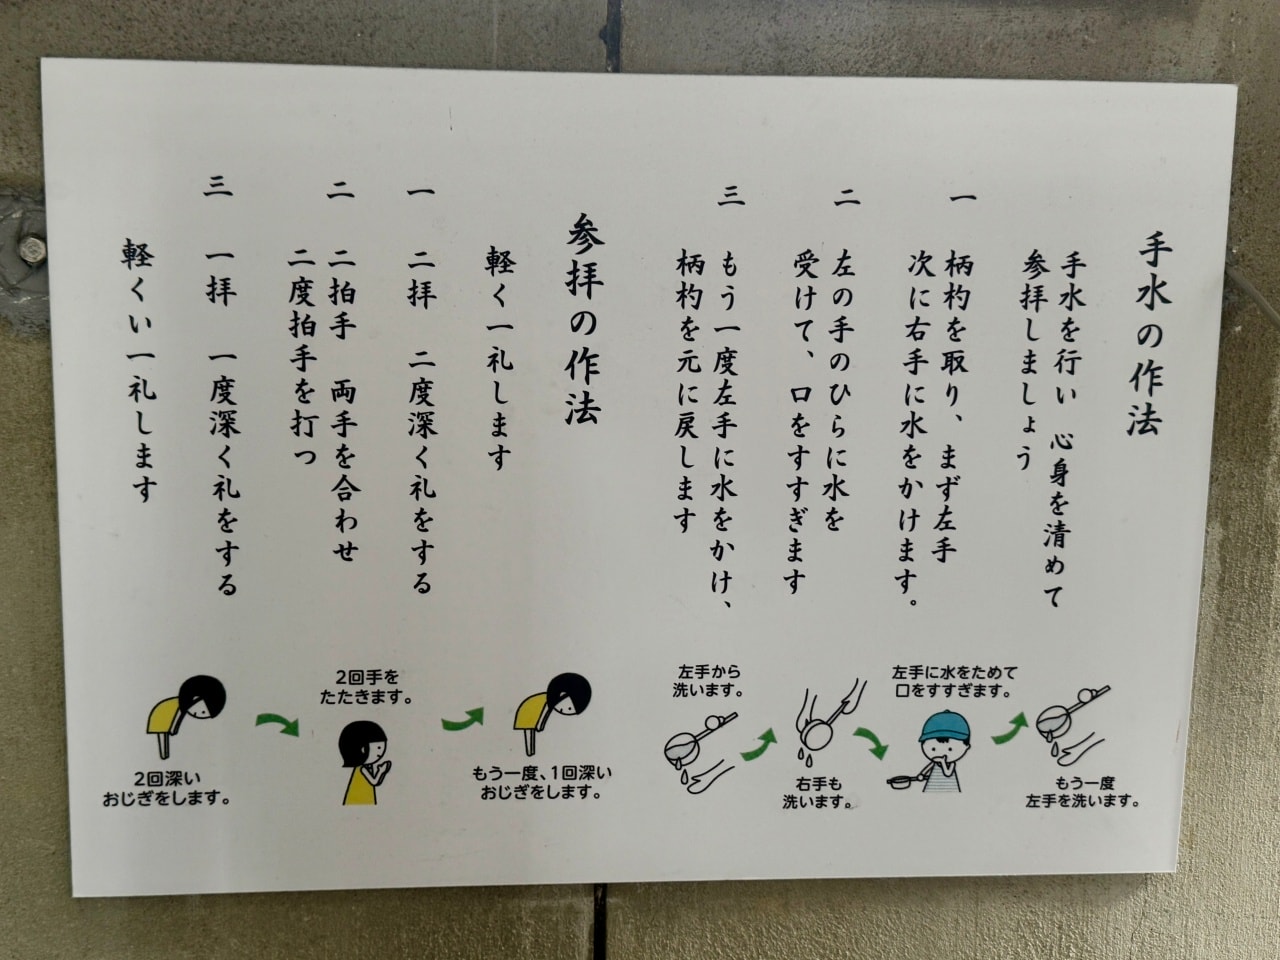 手水の作法
手水を行い 心身を清めて
参拝しましょう
一 柄杓を取り、まず左手
次に右手に水をかけます。
二 左の手のひらに水を
受けて、口をすすぎます
三 もう一度左手に水をかけ、
柄杓を元に戻します
参拝の作法
軽く一礼します
一 二拝 二度深く礼をする
二 二拍手 両手を合わせ
二度拍手を打つ
三 一拝 一度深く礼をする
軽くい一礼します
2回深い
おじぎをします。
2回手を
たたきます。
もう一度、1回深い
おじぎをします。
左手から
洗います。
右手も
洗います。
左手に水をためて
口をすすぎます。
もう一度
左手を洗います。